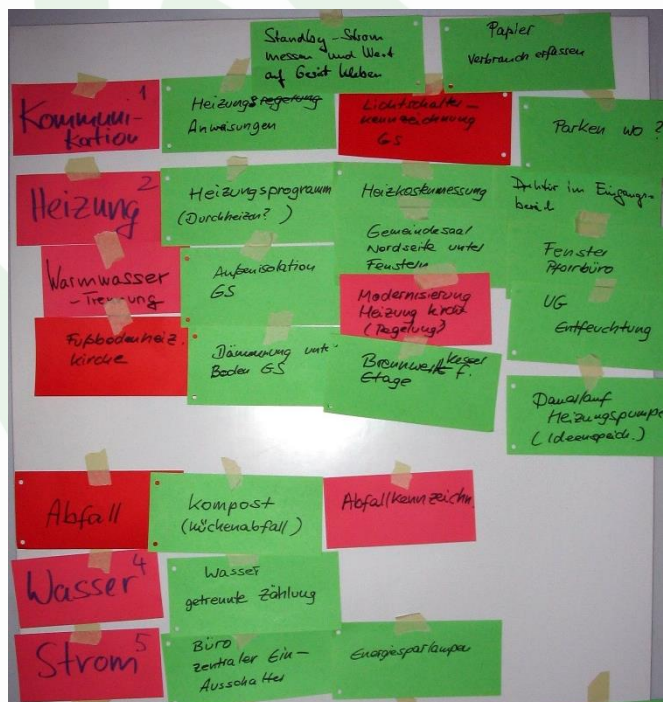 Standby-Strom
messen und Wert
auf Gerät kleben
Papier
verbrauch erfassen
Kommuni-
kation
1
Heizungsregelung
Anweisungen
Lichtschalter-
kennzeichnung
GS
Parken wo?
Heizung
2
Heizungsprogramm
(Durchheizen?)
Heizkostenmessung
Gemeindesaal
Nordseite unter
Fenstern
im Eingangs-
bereich
Fenster
Pfarrbüro
Warmwasser
- Trennung
Außenisolation
GS
Modernisierung
Heizung Kirche
(Regelung?)
UG
Entfeuchtung
Fußbodenheiz.
Kirche
Dämmung unt.
Boden GS
Brennwertkessel f.
Etage
Dauerlauf
Heizungspumpe
(Ideenspeich.)
Abfall
Kompost
(Küchenabfall)
Abfallkennzeichn.
Wasser
4
Wasser
getrennte Zählung
Strom
5
Büro
zentraler Ein-
Ausschalter
Energiesparlampen